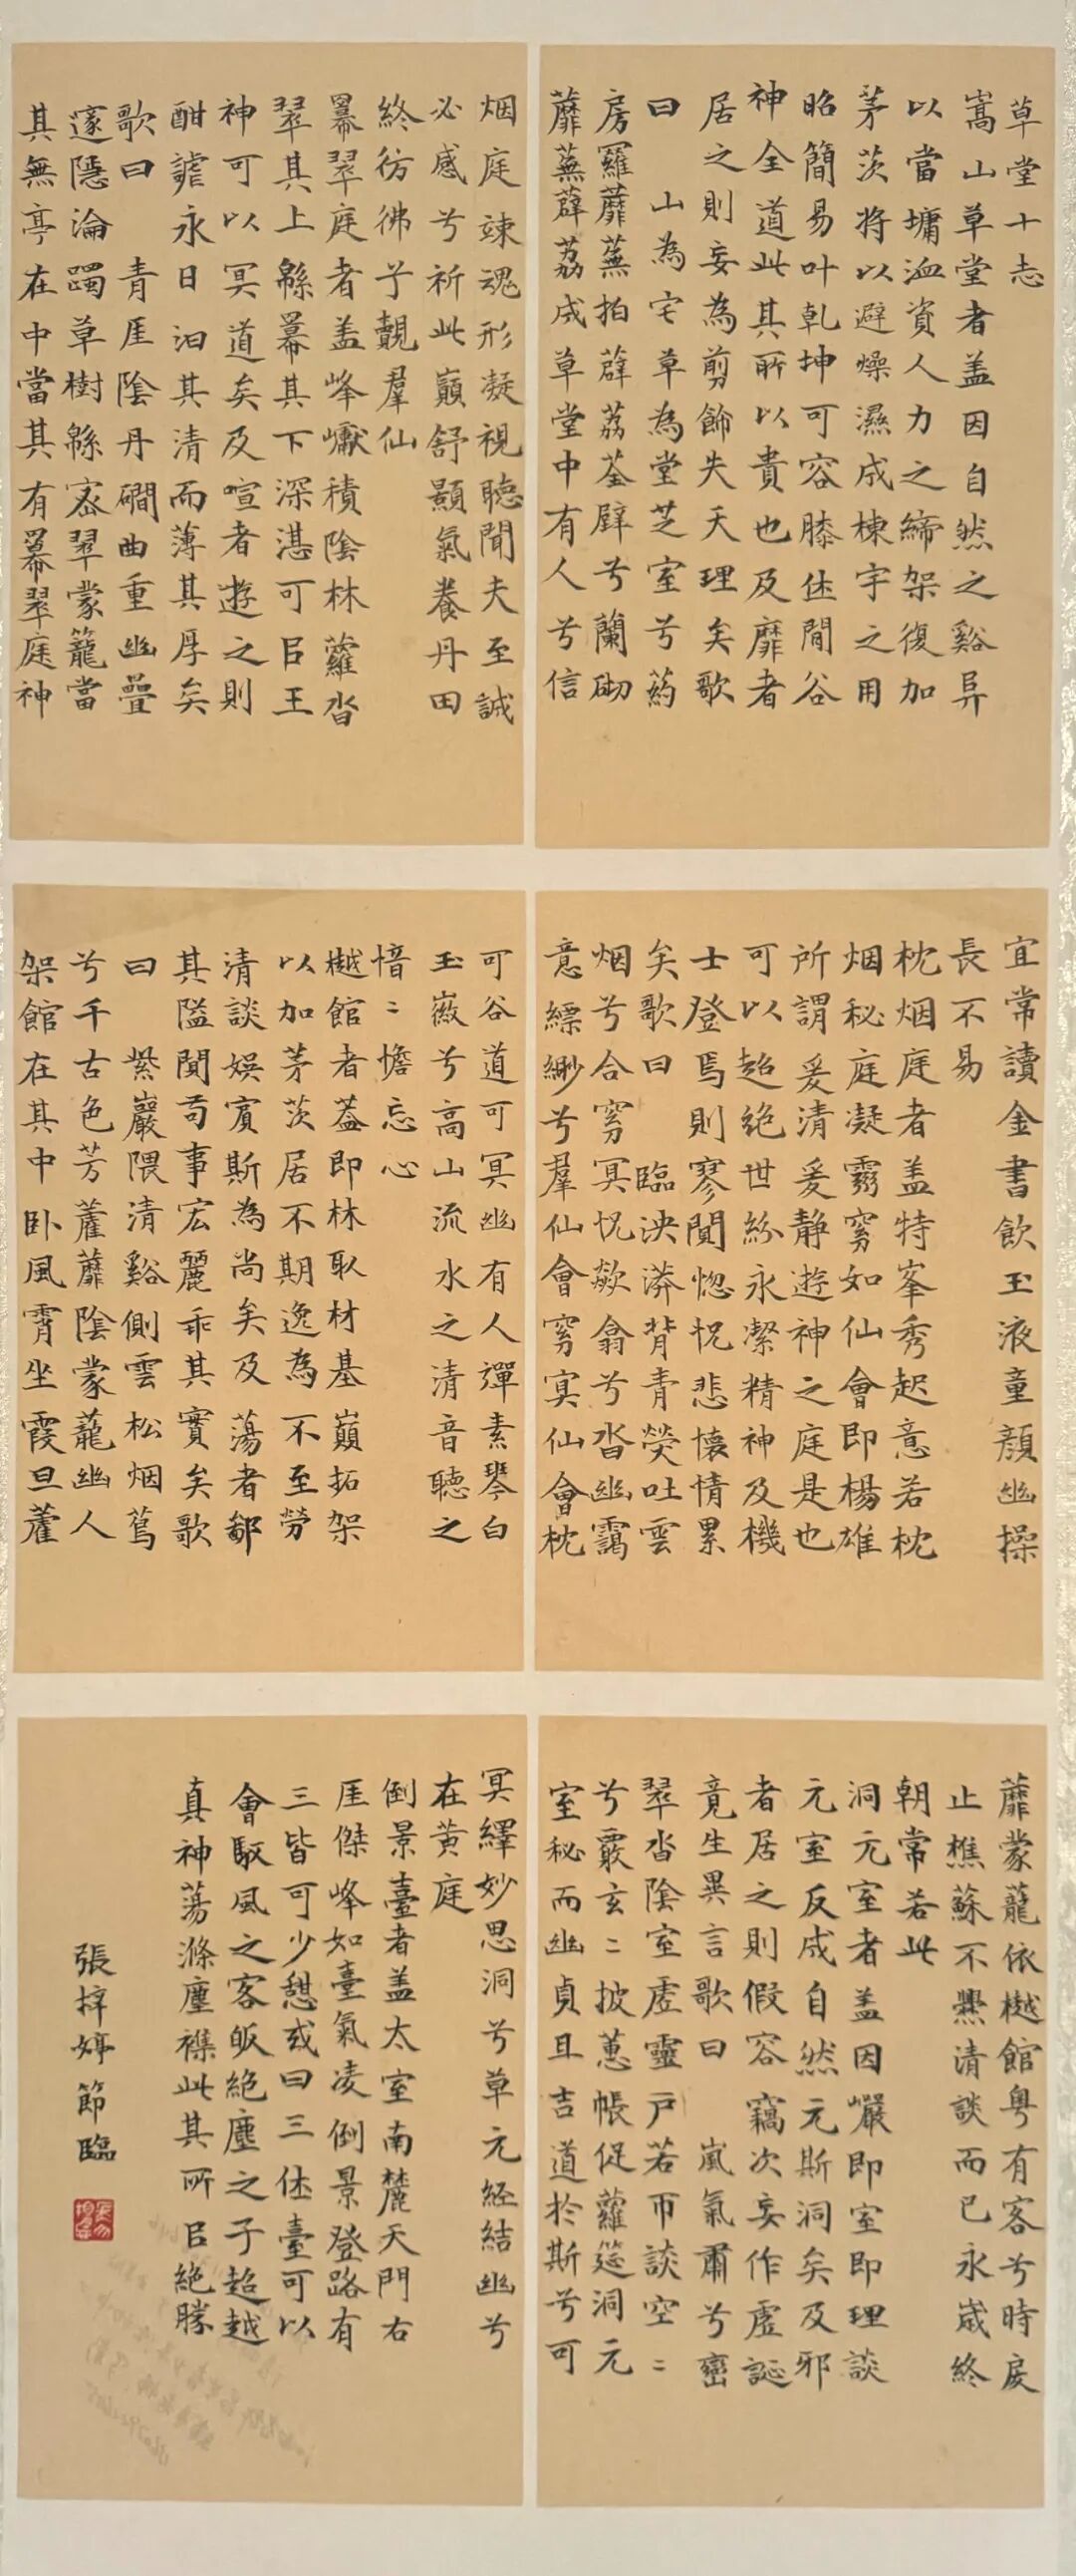 草堂十志
嵩山草堂者盖因自然之谿㠯
以當墉洫資人力之締架復加
茅茨将以避燥濕成棟宇之用
昭簡易叶乹坤可容膝休閒谷
神全道此其所以貴也及靡者
居之則妄為剪飾失天理矣歌
曰　山為宅草為堂芝室兮葯
房羅蘼蕪拍薜荔荃壁兮蘭砌
蘼蕪薜荔成草堂中有人兮信
宜常讀金書飲玉液童顔幽操
長不易
枕烟庭者盖特峯秀起意若枕
烟秘庭凝靄窈如仙會即楊雄
所謂爰清爰静遊神之庭是也
可以超絶世紛永潔精神及機
士登焉則寥闃惚怳悲懷情累
矣歌曰　臨泱漭背青熒吐雲
烟兮合窈冥怳歘翕兮沓幽靄
意縹緲兮羣仙會窈冥仙會枕
烟庭竦魂形凝視聽聞夫至誠
必感兮祈此巔舒顥氣養丹田
終彷彿兮覿羣仙
羃翠庭者盖峰巘積陰林蘿沓
翠其上緜羃其下深湛可㠯王
神可以冥道矣及喧者遊之則
酣謔永日汩其清而薄其厚矣
歌曰　青厓陰丹磵曲重幽疊
邃隱淪躅草樹緜宻翠蒙籠當
其無亭在中當其有羃翠庭神
可谷道可冥幽有人彈素琴白
玉徽兮高山流水之清音聽之
愔〻憺忘心
樾館者葢即林取材基巔拓架
以加茅茨居不期逸為不至勞
清談娛賓斯為尚矣及蕩者鄙
其隘闃苟事宏麗乖其實矣歌
曰　紫巖隈清谿側雲松烟蔦
兮千古色芳藿蘼陰蒙蘢幽人
架館在其中卧風霄坐霞旦藿
蘼蒙蘢依樾館粤有客兮時戾
止樵蘇不爨清談而已永歲終
朝常若此
洞元室者盖因巖即室即理談
元室反成自然元斯洞矣及邪
者居之則假容竊次妄作虚誕
竟生異言歌曰　嵐氣肅兮巒
翠沓陰室虚靈戶若帀談空〻
兮覈玄〻披蕙帳促蘿筵洞元
室秘而幽貞且吉道於斯兮可
冥繹妙思洞兮草元经結幽兮
在黄庭
倒景臺者盖太室南麓天門右
厓傑峰如臺氣凌倒景登路有
三皆可少憩或曰三休臺可以
會馭風之客皈絶塵之子超越
真神蕩滌塵襟此其所㠯絶勝
張梓婷節臨